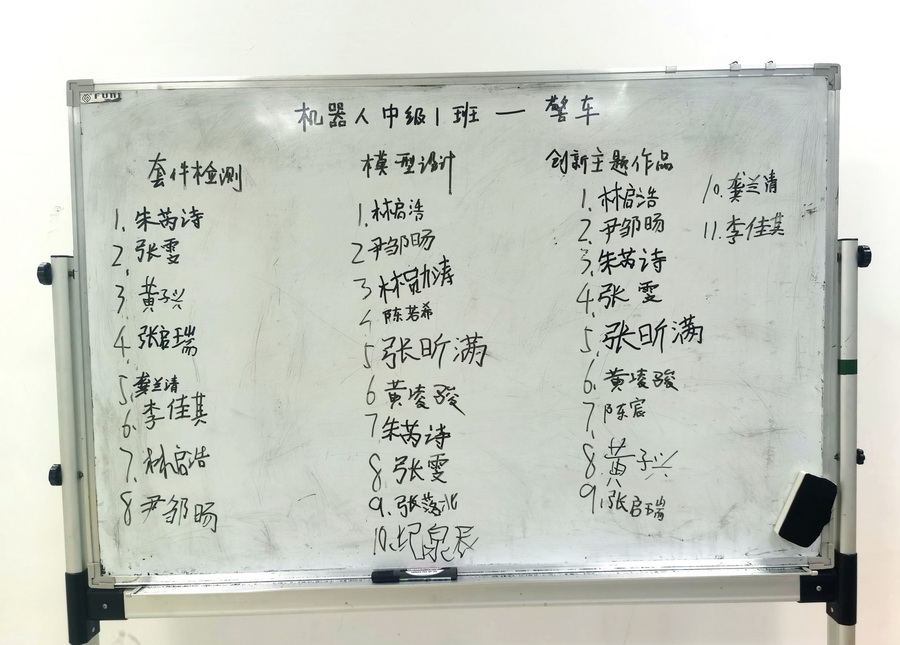 机器人中级1班 — 警车
套件检测
1. 朱芮诗
2. 张雯
3. 黄子兴
4. 张启瑞
5. 龚兰清
6. 李佳莫
7. 林启浩
8 尹邹旸
模型设计
1. 林启浩
2 尹邹旸
3 林勋涛
4 陈若希
5 张昕满
6 黄凌骏
7 朱芮诗
8. 张雯
9. 张落北
10. 圮泉辰
创新主题作品
1. 林启浩
2. 尹邹旸
3. 朱芮诗
4. 张雯
5. 张昕满
6. 黄凌骏
7. 陈宸
8 黄子兴
9. 张启瑞
10. 龚兰清
11. 李佳莫